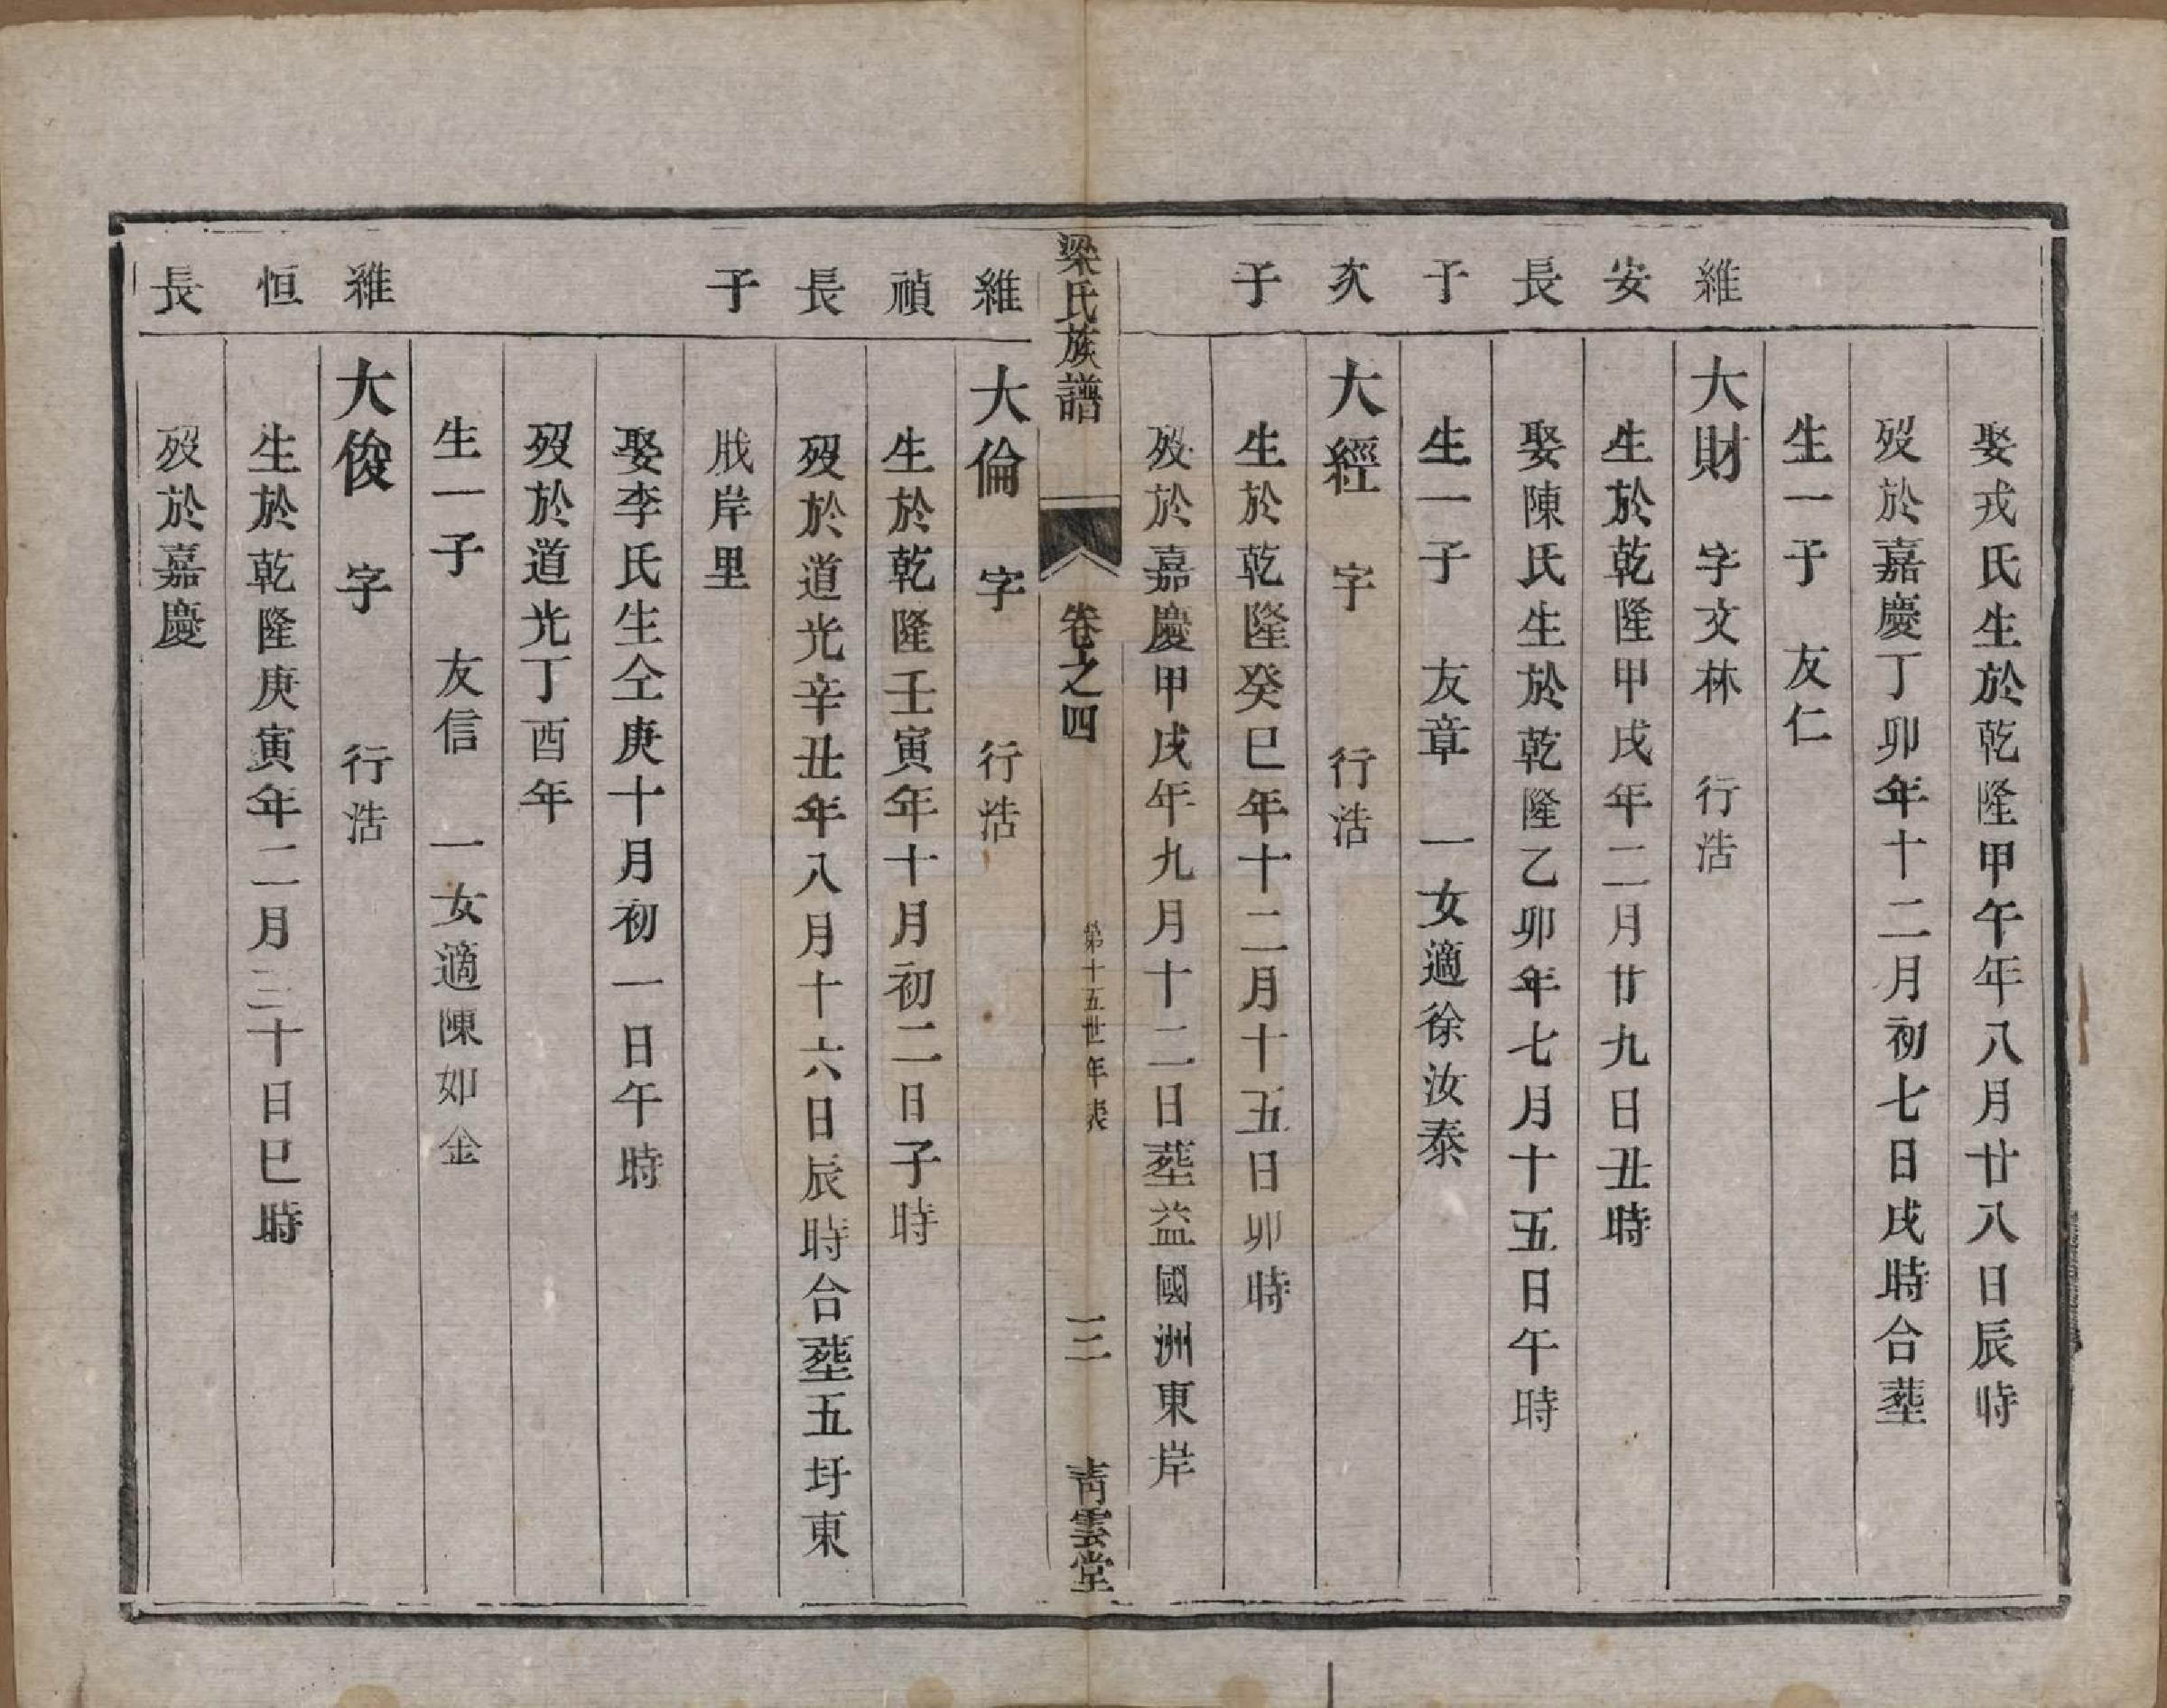 娶戎氏生於乾隆甲午年八月廿八日辰時
歿於嘉慶丁卯年十二月初七日戌時合塟
生一子 友仁
維 大財 字文林 行浩
安 生於乾隆甲戌年二月廿九日丑時
長 娶陳氏生於乾隆乙卯年七月十五日午時
子 生一子 友章 一女適徐汝泰
次 大經 字 行浩
子 生於乾隆癸巳年十二月十五日卯時
歿於嘉慶甲戌年九月十二日塟益國洲東岸
梁氏族譜 卷之四 第十五世年表 三 青雲堂
維 大倫 字 行浩
禎 生於乾隆壬寅年十月初二日子時
長 歿於道光辛丑年八月十六日辰時合塟五圩東
子 戕岸里
娶李氏生仝庚十月初一日午時
歿於道光丁酉年
生一子 友信 一女適陳如金
維 大俊 字 行浩
恒 生於乾隆庚寅年二月三十日巳時
長 歿於嘉慶